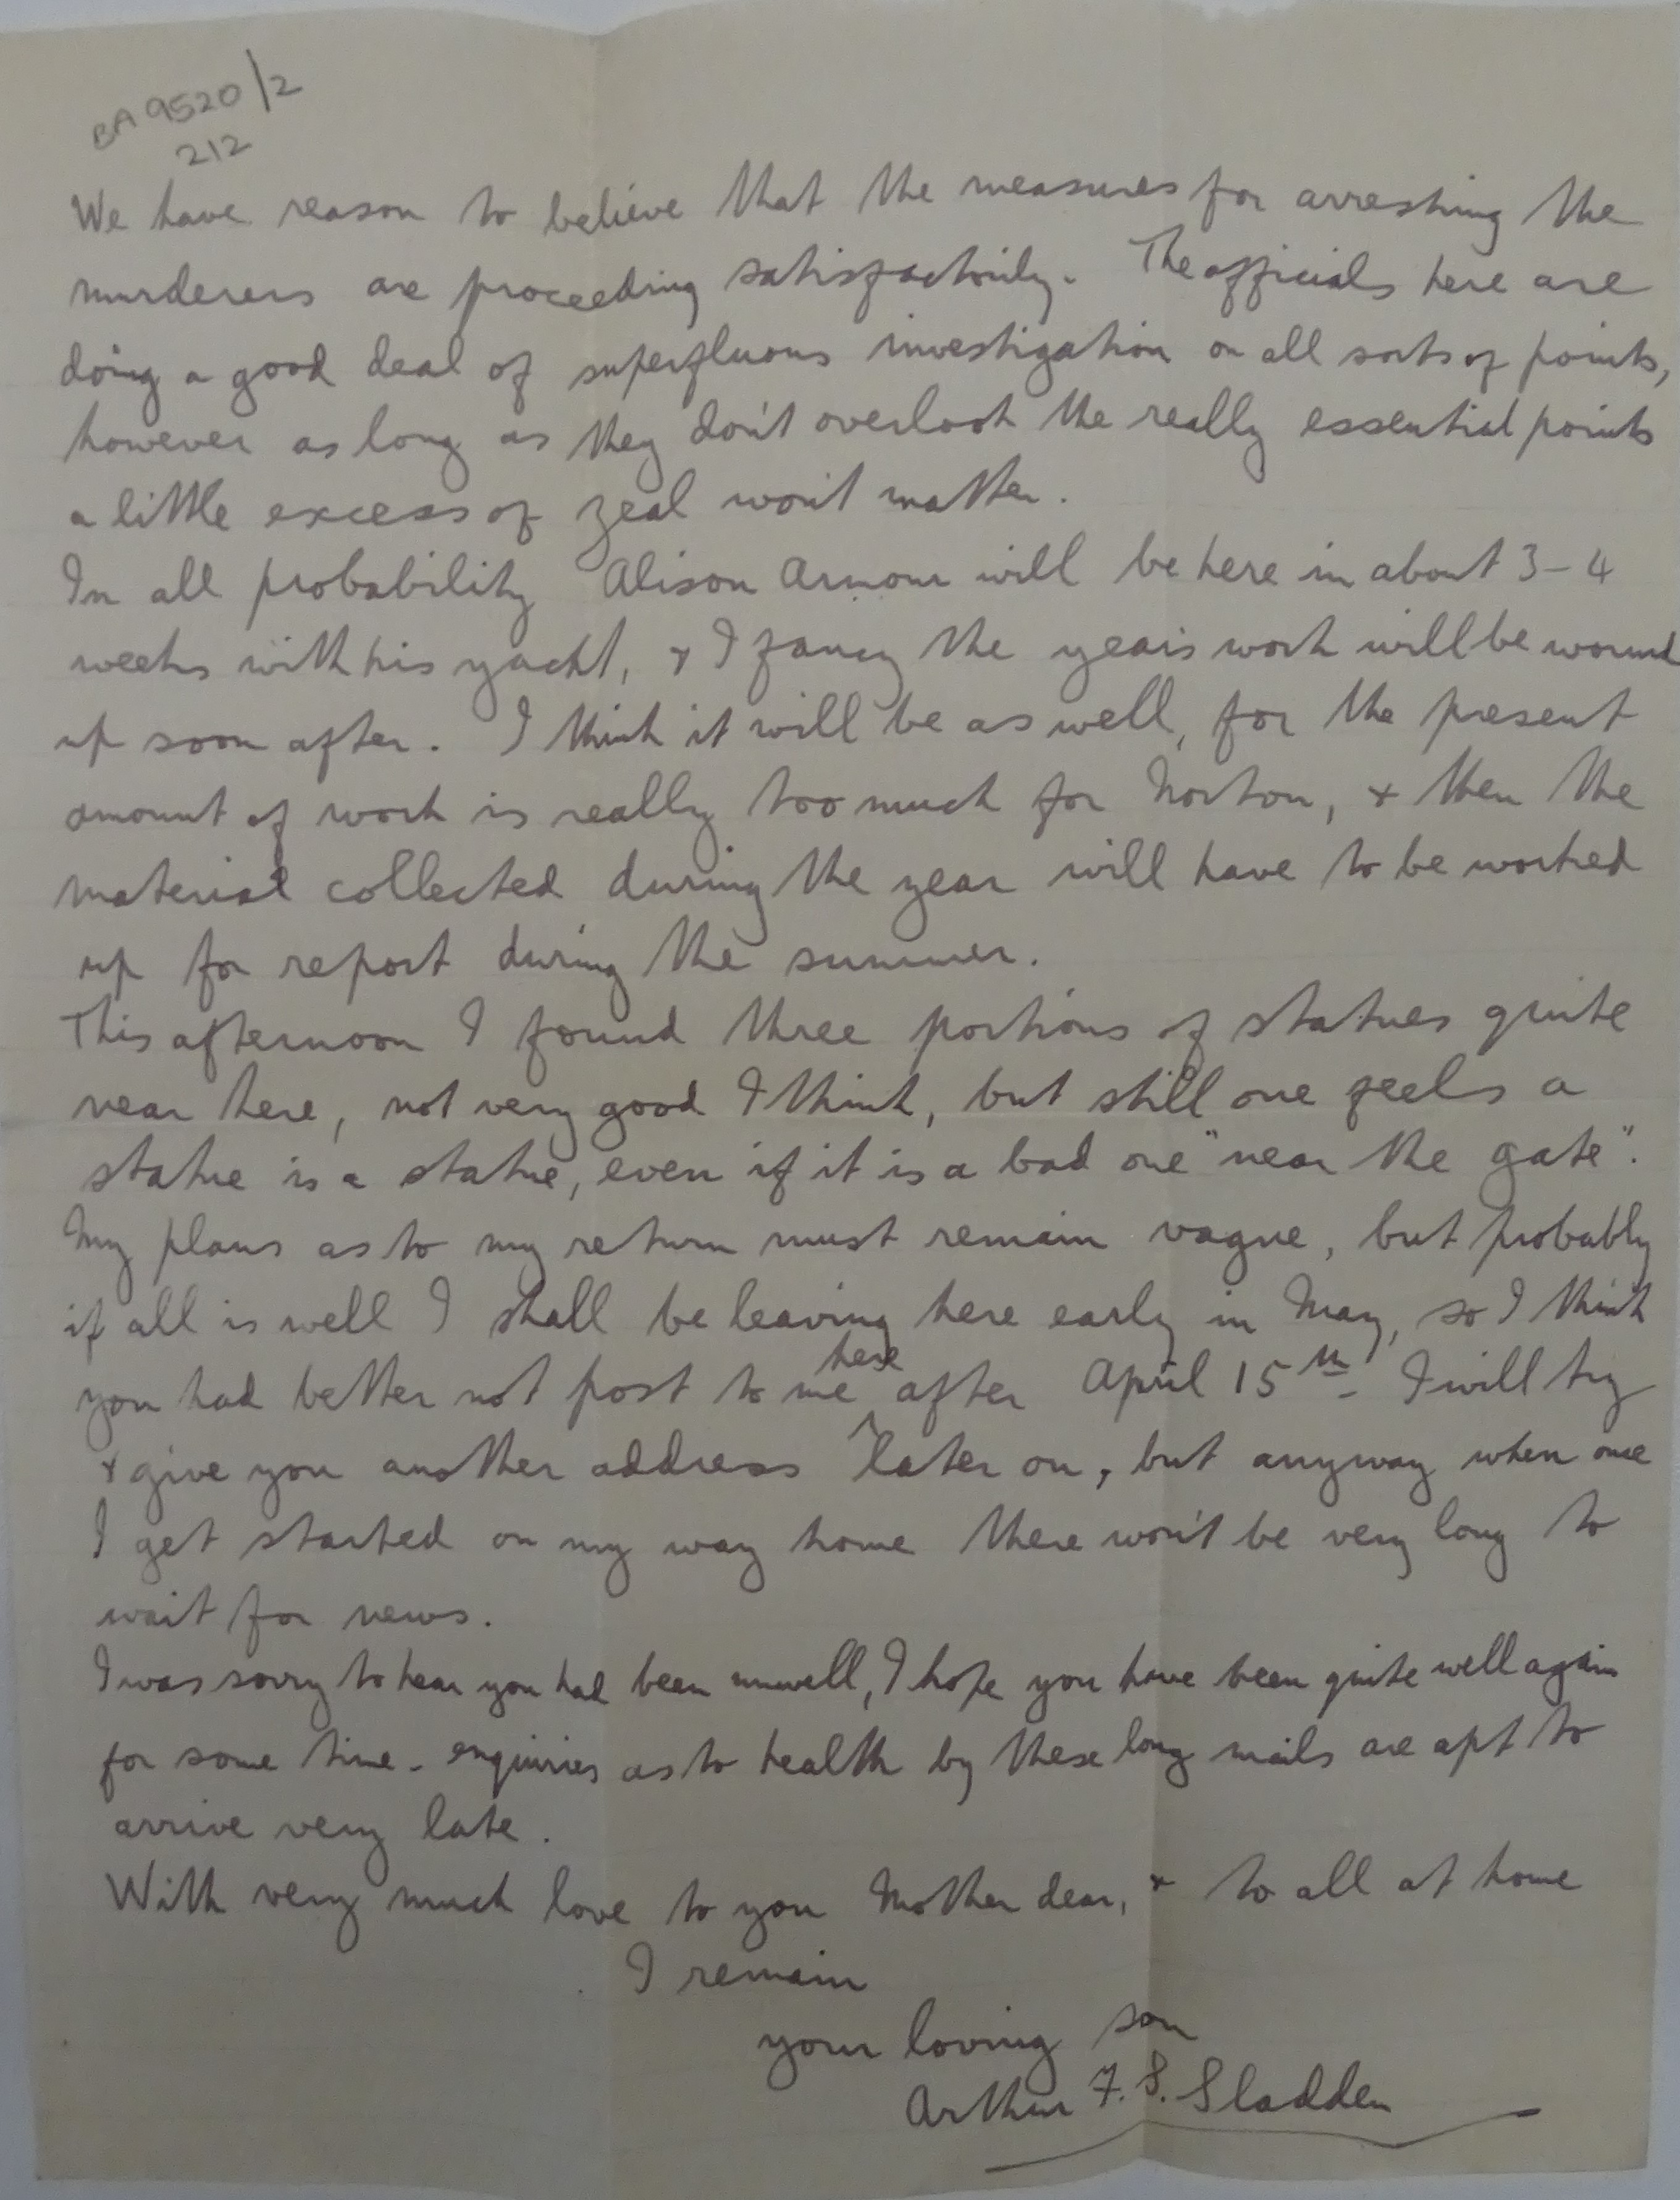 BA 9520/2
212
We have reason to believe that the measures for arresting the
murderers are proceeding satisfactorily. The officials here are
doing a good deal of superfluous investigation on all sorts of points,
however as long as they don't overlook the really essential points
a little excess of zeal won't matter.
In all probability Alison Armour will be here in about 3-4
weeks with his yacht, & I fancy the year's work will be wound
up soon after. I think it will be as well, for the present
amount of work is really too much for Norton, & then the
material collected during the year will have to be worked
up for report during the summer.
This afternoon I found three portions of statues quite
near here, not very good I think, but still one feels a
statue is a statue, even if it is a bad one "near the gate".
My plans as to my return must remain vague, but probably
if all is well I shall be leaving here early in May, so I think
you had better not post to me here after April 15th. I will try
& give you another address later on, but anyway when once
I get started on my way home there won't be very long to
wait for news.
I was sorry to hear you had been unwell, I hope you have been quite well again
for some time - enquiries as to health by these long mails are apt to
arrive very late.
With very much love to you Mother dear, & to all at home
I remain
your loving son
Arthur F. S. Sladden